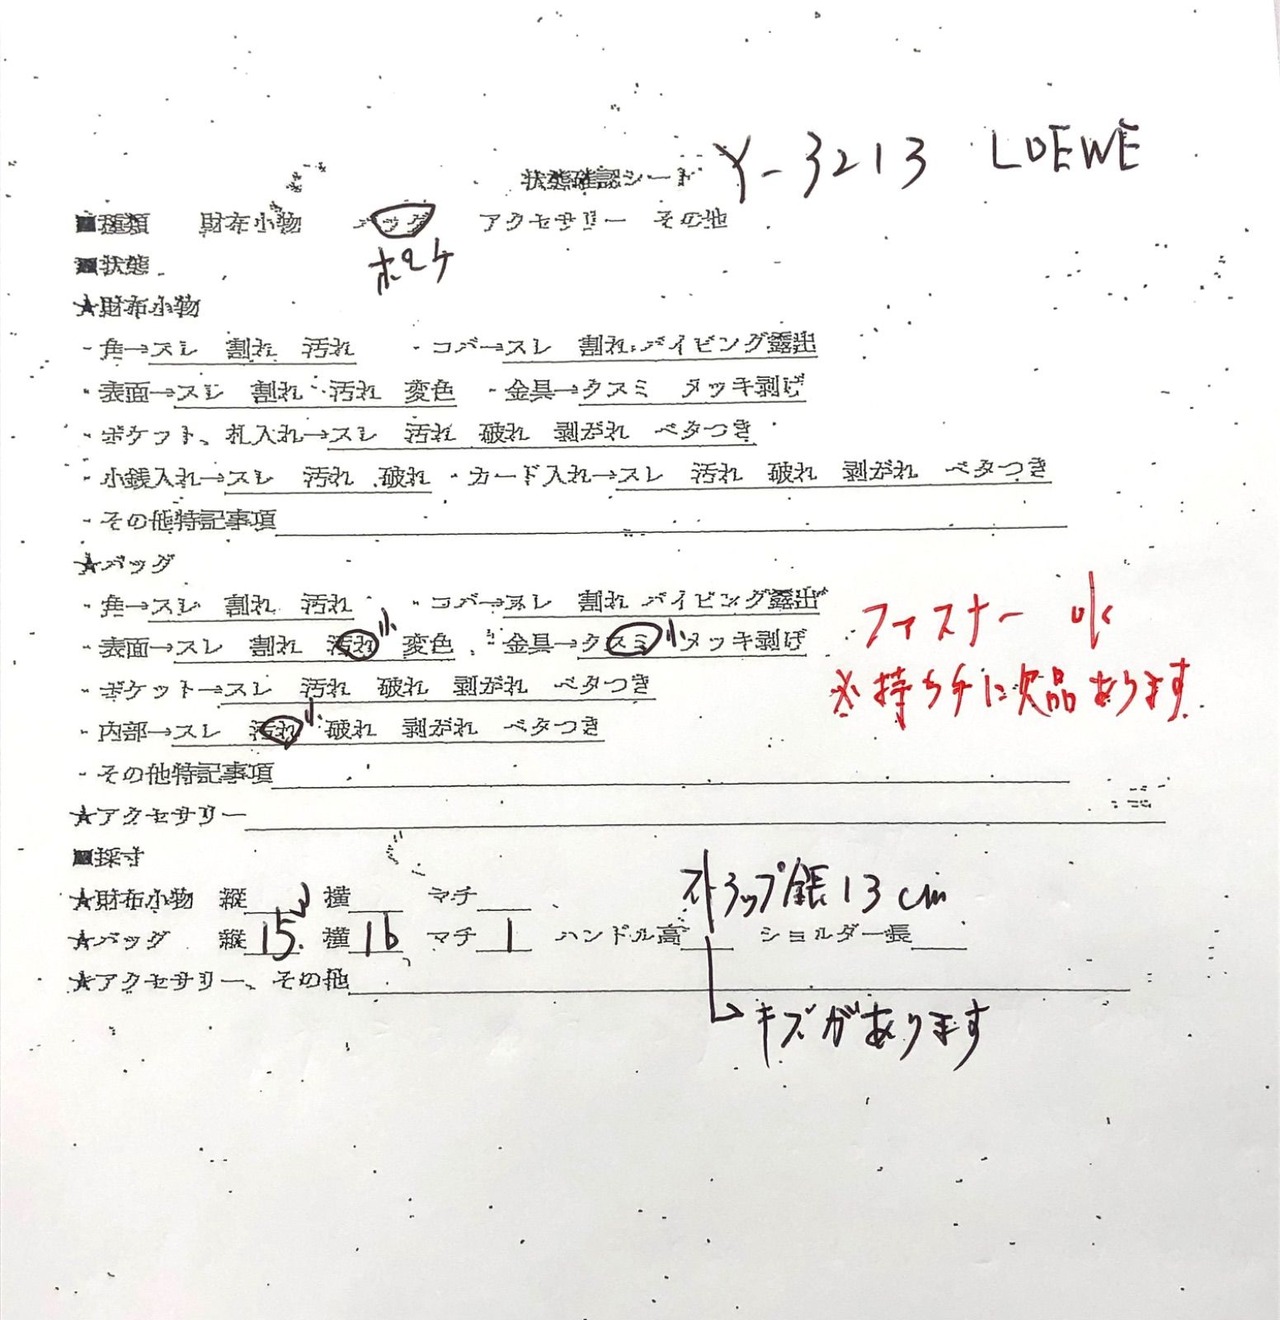 状態確認シート Y-3213 LOEWE
■種類 財布小物 バッグ アクセサリー その他
ポーチ
■状態
★財布小物
・角→スレ 割れ 汚れ ・コバ→スレ 割れ パイピング露出
・表面→スレ 割れ 汚れ 変色 ・金具→クスミ メッキ剥げ
・ポケット、札入れ→スレ 汚れ 破れ 剥がれ ベタつき
・小銭入れ→スレ 汚れ 破れ ・カード入れ→スレ 汚れ 破れ 剥がれ ベタつき
・その他特記事項
★バッグ
・角→スレ 割れ 汚れ ・コバ→スレ 割れ パイピング露出
・表面→スレ 割れ 汚れ 小 変色 ・金具→クスミ 小 メッキ剥げ
ファスナー 小
・ポケット→スレ 汚れ 破れ 剥がれ ベタつき
※持ち手に欠品あります
・内部→スレ 汚れ 小 破れ 剥がれ ベタつき
・その他特記事項
★アクセサリー
■採寸
★財布小物 縦 横 マチ
ストラップ 長13cm
★バッグ 縦15 横16 マチ1 ハンドル高 ショルダー長
★アクセサリー、その他
キズがあります